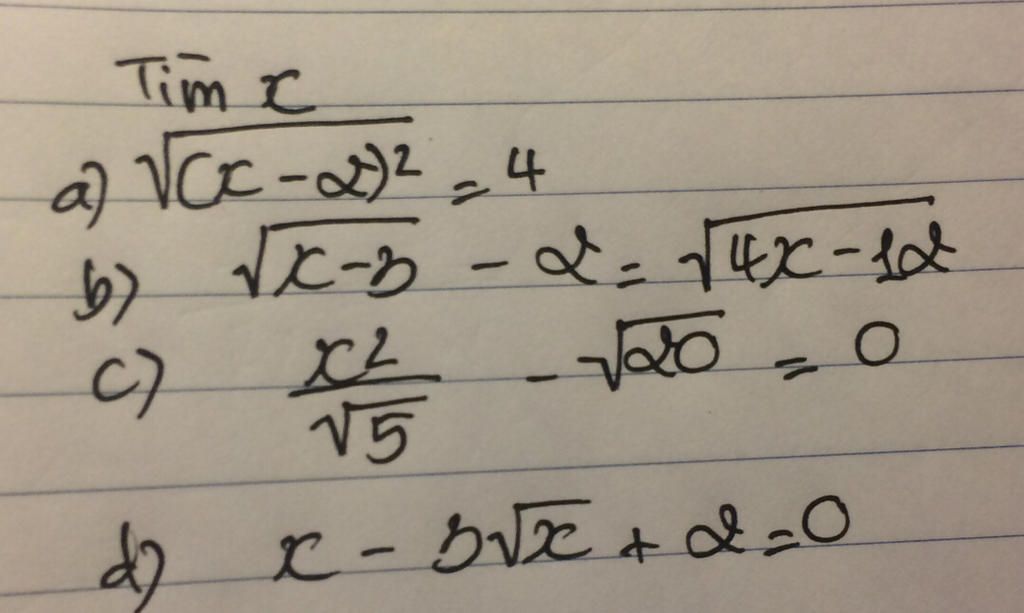 Tìm x
a) √(x-2)² = 4
b) √x-3 - 2 = √4x-12
c) x²/√5 - √20 = 0
d) x - 3√x + 2 = 0